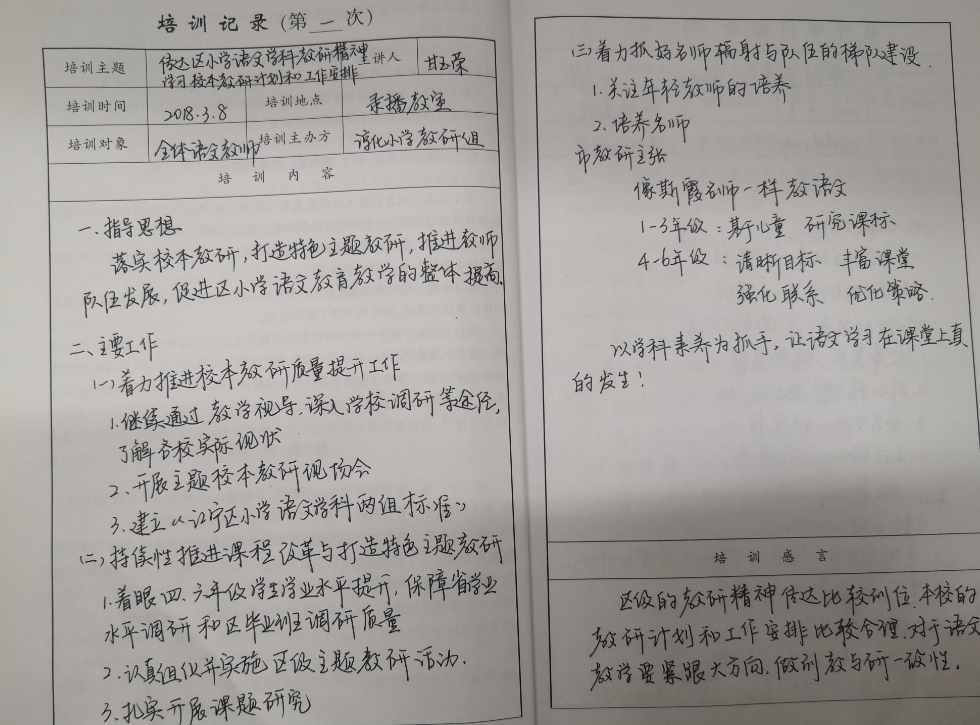 培训记录(第一次)
培训主题 传达区小学语文学科教研精神 学习校本教研计划和工作安排 主讲人 甘玉荣
培训时间 2018.3.8 培训地点 录播教室
培训对象 全体语文教师 培训主办方 淳化小学教研组
培训内容
一.指导思想
落实校本教研,打造特色主题教研,推进教师
队伍发展,促进区小学语文教育教学的整体提高。
二、主要工作
(一)着力推进校本教研质量提升工作
1.继续通过教学视导、深入学校调研等途径,
了解各校实际现状
2.开展主题校本教研现场会
3.建立《江宁区小学语文学科两组标准》
(二)持续性推进课程改革与打造特色主题教研
1.着眼四、六年级学生学业水平提升,保障省学业
水平调研和区毕业班调研质量
2.认真组织并实施区级主题教研活动.
3.扎实开展课题研究
(三)着力抓好名师辐射与队伍的梯队建设.
1.关注年轻教师的培养
2.培养名师
市教研主张
像斯霞名师一样教语文
1-3年级:基于儿童 研究课标
4-6年级:清晰目标 丰富课堂
强化联系 优化策略.
以学科素养为抓手,让语文学习在课堂上真
的发生!
培训感言
区级的教研精神传达比较到位.本校的
教研计划和工作安排比较合理.对于语文
教学要紧跟大方向.做到教与研一致性.